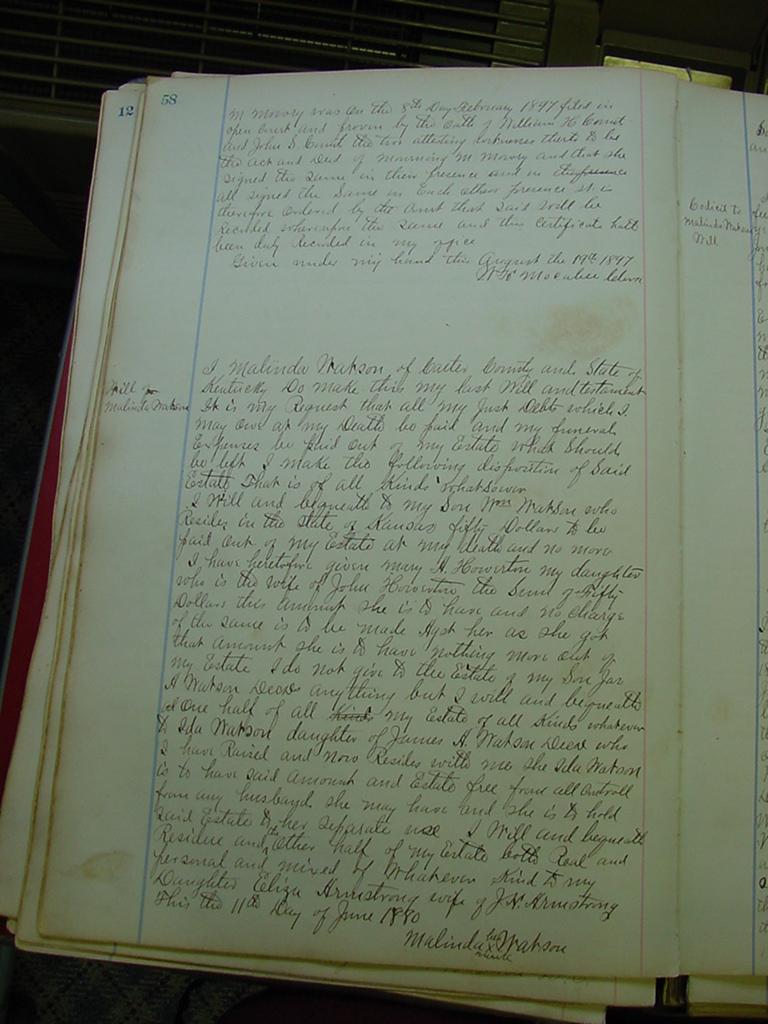 12
58
M Mavry was on the 8th Day February 1897 filed in
open Court and proven by the Oath of William H
and John S the two attesting witnesses thereto to be
the act and Deed of Mourning M Mavry and that she
signed the same in their presence and in
all signed the Same in Each Others presence It is
therefore Ordered by the Court that Said Will be
Recorded whereupon the Same and this Certificate hath
been duly Recorded in my office
Given under my hand this August the 19th 1897
Codicil to
Malinda Watson
Will
Will of
Malinda Watson
I Malinda Watson of Carter County and State of
Kentucky Do make this my last Will and testament
It is my Request that all my Just Debts which I
may owe at my Death be paid and my funeral
Expenses be paid out of my Estate what Should
be left I make the following disposition of Said
Estate That is of all Kinds whatsoever
I Will and bequeath to my Son Wm Watson who
Resides in the State of Kansas fifty Dollars to be
paid out of my Estate at my death and no more
I have heretofore given Mary A. Howerton my daughter
who is the wife of John Howerton the Sum of Fifty
Dollars this amount she is to have and no Charge
of the same is to be made Agst her as she got
that amount she is to have nothing more out of
my Estate I do not give to the Estate of my Son Jas
A Watson Decd anything but I will and bequeath
one half of all Kinds my Estate of all Kinds whatever
to Ida Watson daughter of James A. Watson Decd who
I have Raised and now Resides with me she Ida Watson
is to have said amount and Estate free from all Controll
from any husband she may have and she is to hold
said Estate to her separate use I Will and bequeath
Residue and the Other half of my Estate both Real and
personal and mixed of Whatever Kind to my
Daughter Eliza Armstrong wife of J H Armstrong
This the 11th Day of June 1880
Malinda her x mark Watson